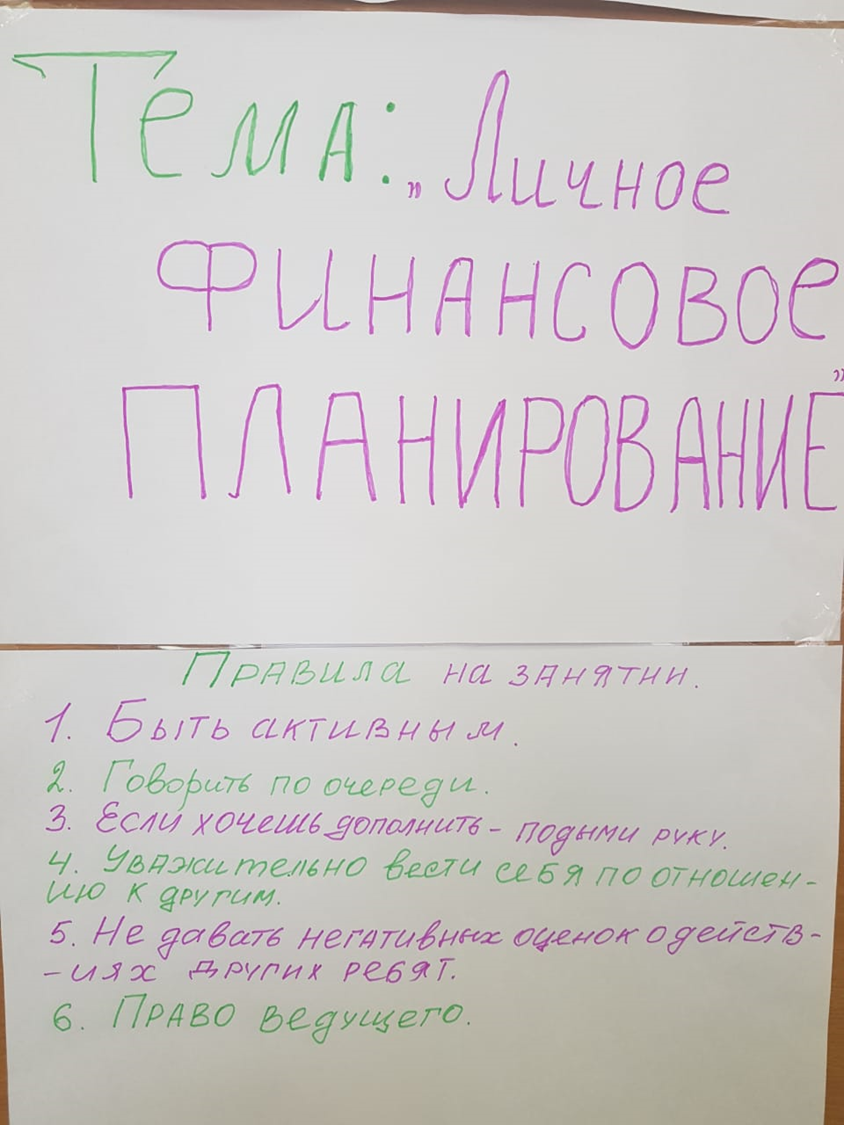 Тема: „Личное
ФИНАНСОВОЕ
ПЛАНИРОВАНИЕ”
Правила на занятии.
1. Быть активным.
2. Говорить по очереди.
3. Если хочешь дополнить - подыми руку.
4. Уважительно вести себя по отношен-
ию к другим.
5. Не давать негативных оценок о действ-
-иях других ребят.
6. Право ведущего.